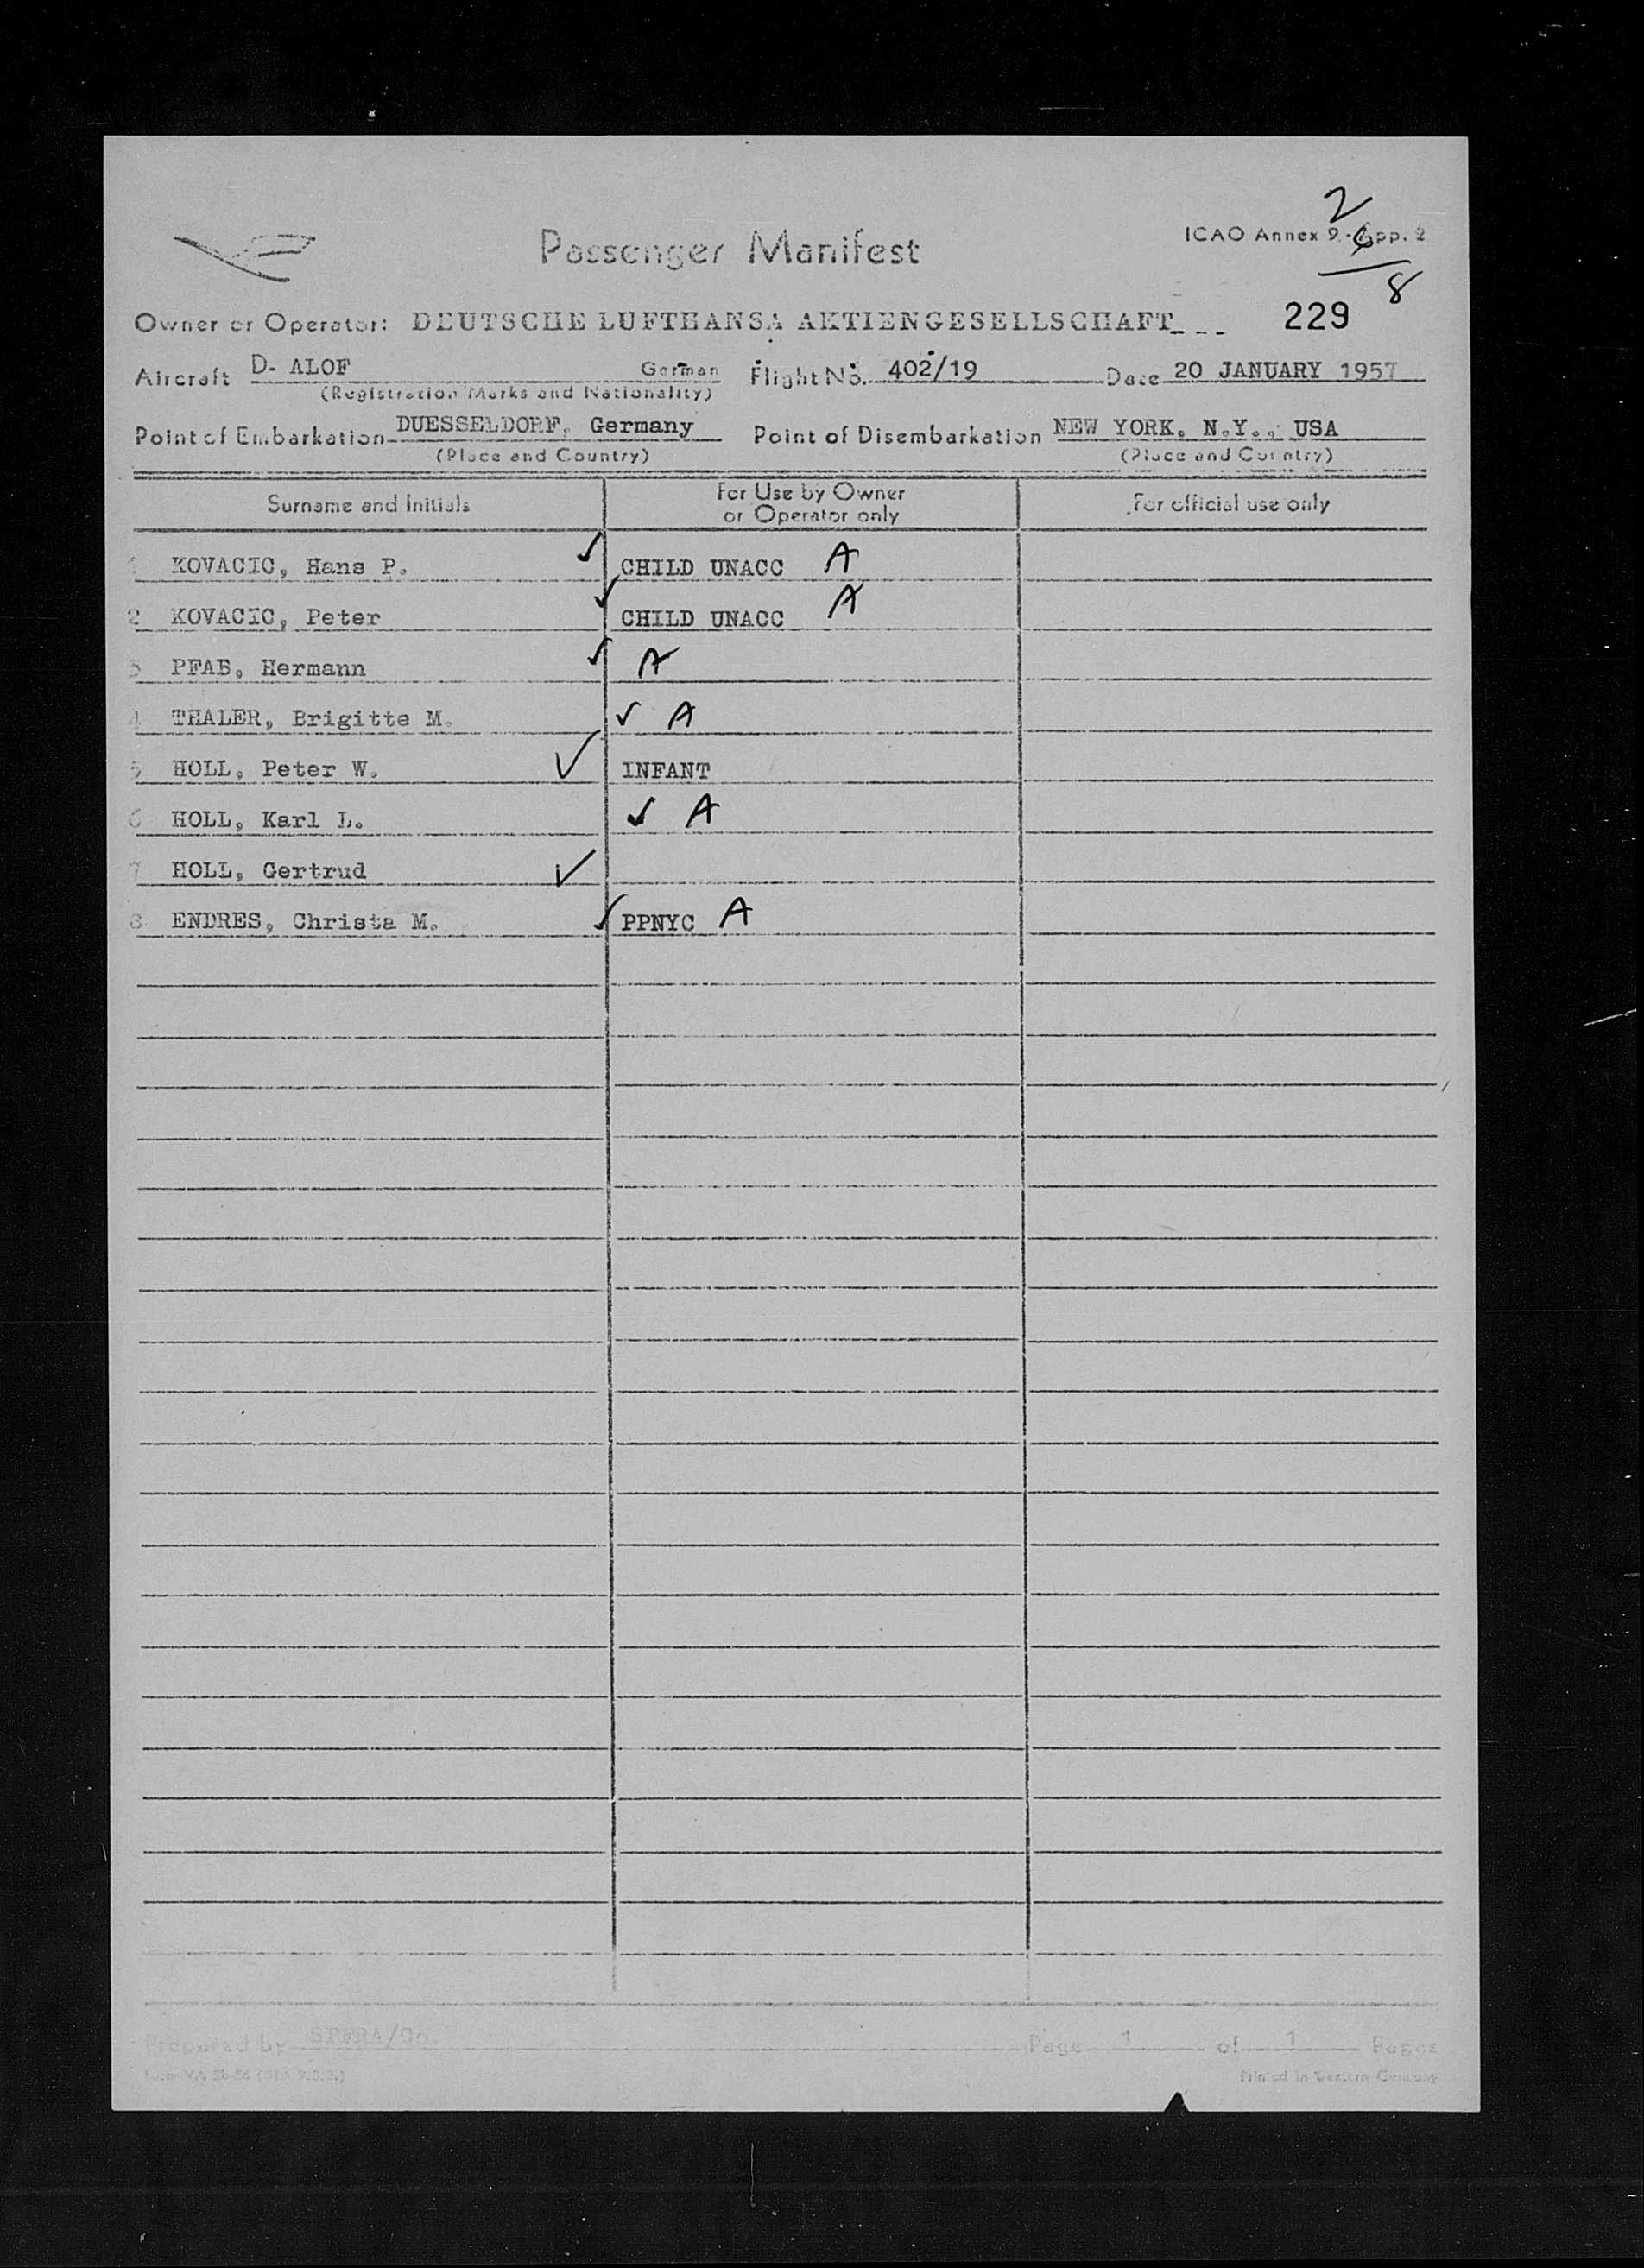 2
Passenger Manifest
ICAO Annex 9 - App. 2
6
8
Owner or Operator: DEUTSCHE LUFTHANSA AKTIENGESELLSCHAFT
229
Aircraft D- ALOF German Flight No. 402/19 Date 20 JANUARY 1957
(Registration Marks and Nationality)
Point of Embarkation DUESSELDORF, Germany Point of Disembarkation NEW YORK. N.Y., USA
(Place and Country) (Place and Country)
Surname and Initials For Use by Owner or Operator only For official use only
1 KOVACIC, Hans P. ✓ CHILD UNACC A
2 KOVACIC, Peter ✓ CHILD UNACC A
3 PFAB, Hermann ✓ A
4 THALER, Brigitte M. ✓ A
5 HOLL, Peter W. ✓ INFANT
6 HOLL, Karl L. ✓ A
7 HOLL, Gertrud ✓
8 ENDRES, Christa M. ✓ PPNYC A
Prepared by Page 1 of 1 Pages
Printed in Western Germany